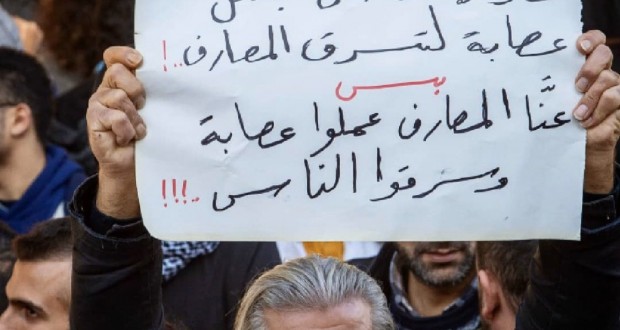 عصابة لتسرق المصارف..!
بس
عنَّا المصارف عملوا عصابة
وسرقوا الناس..!!!